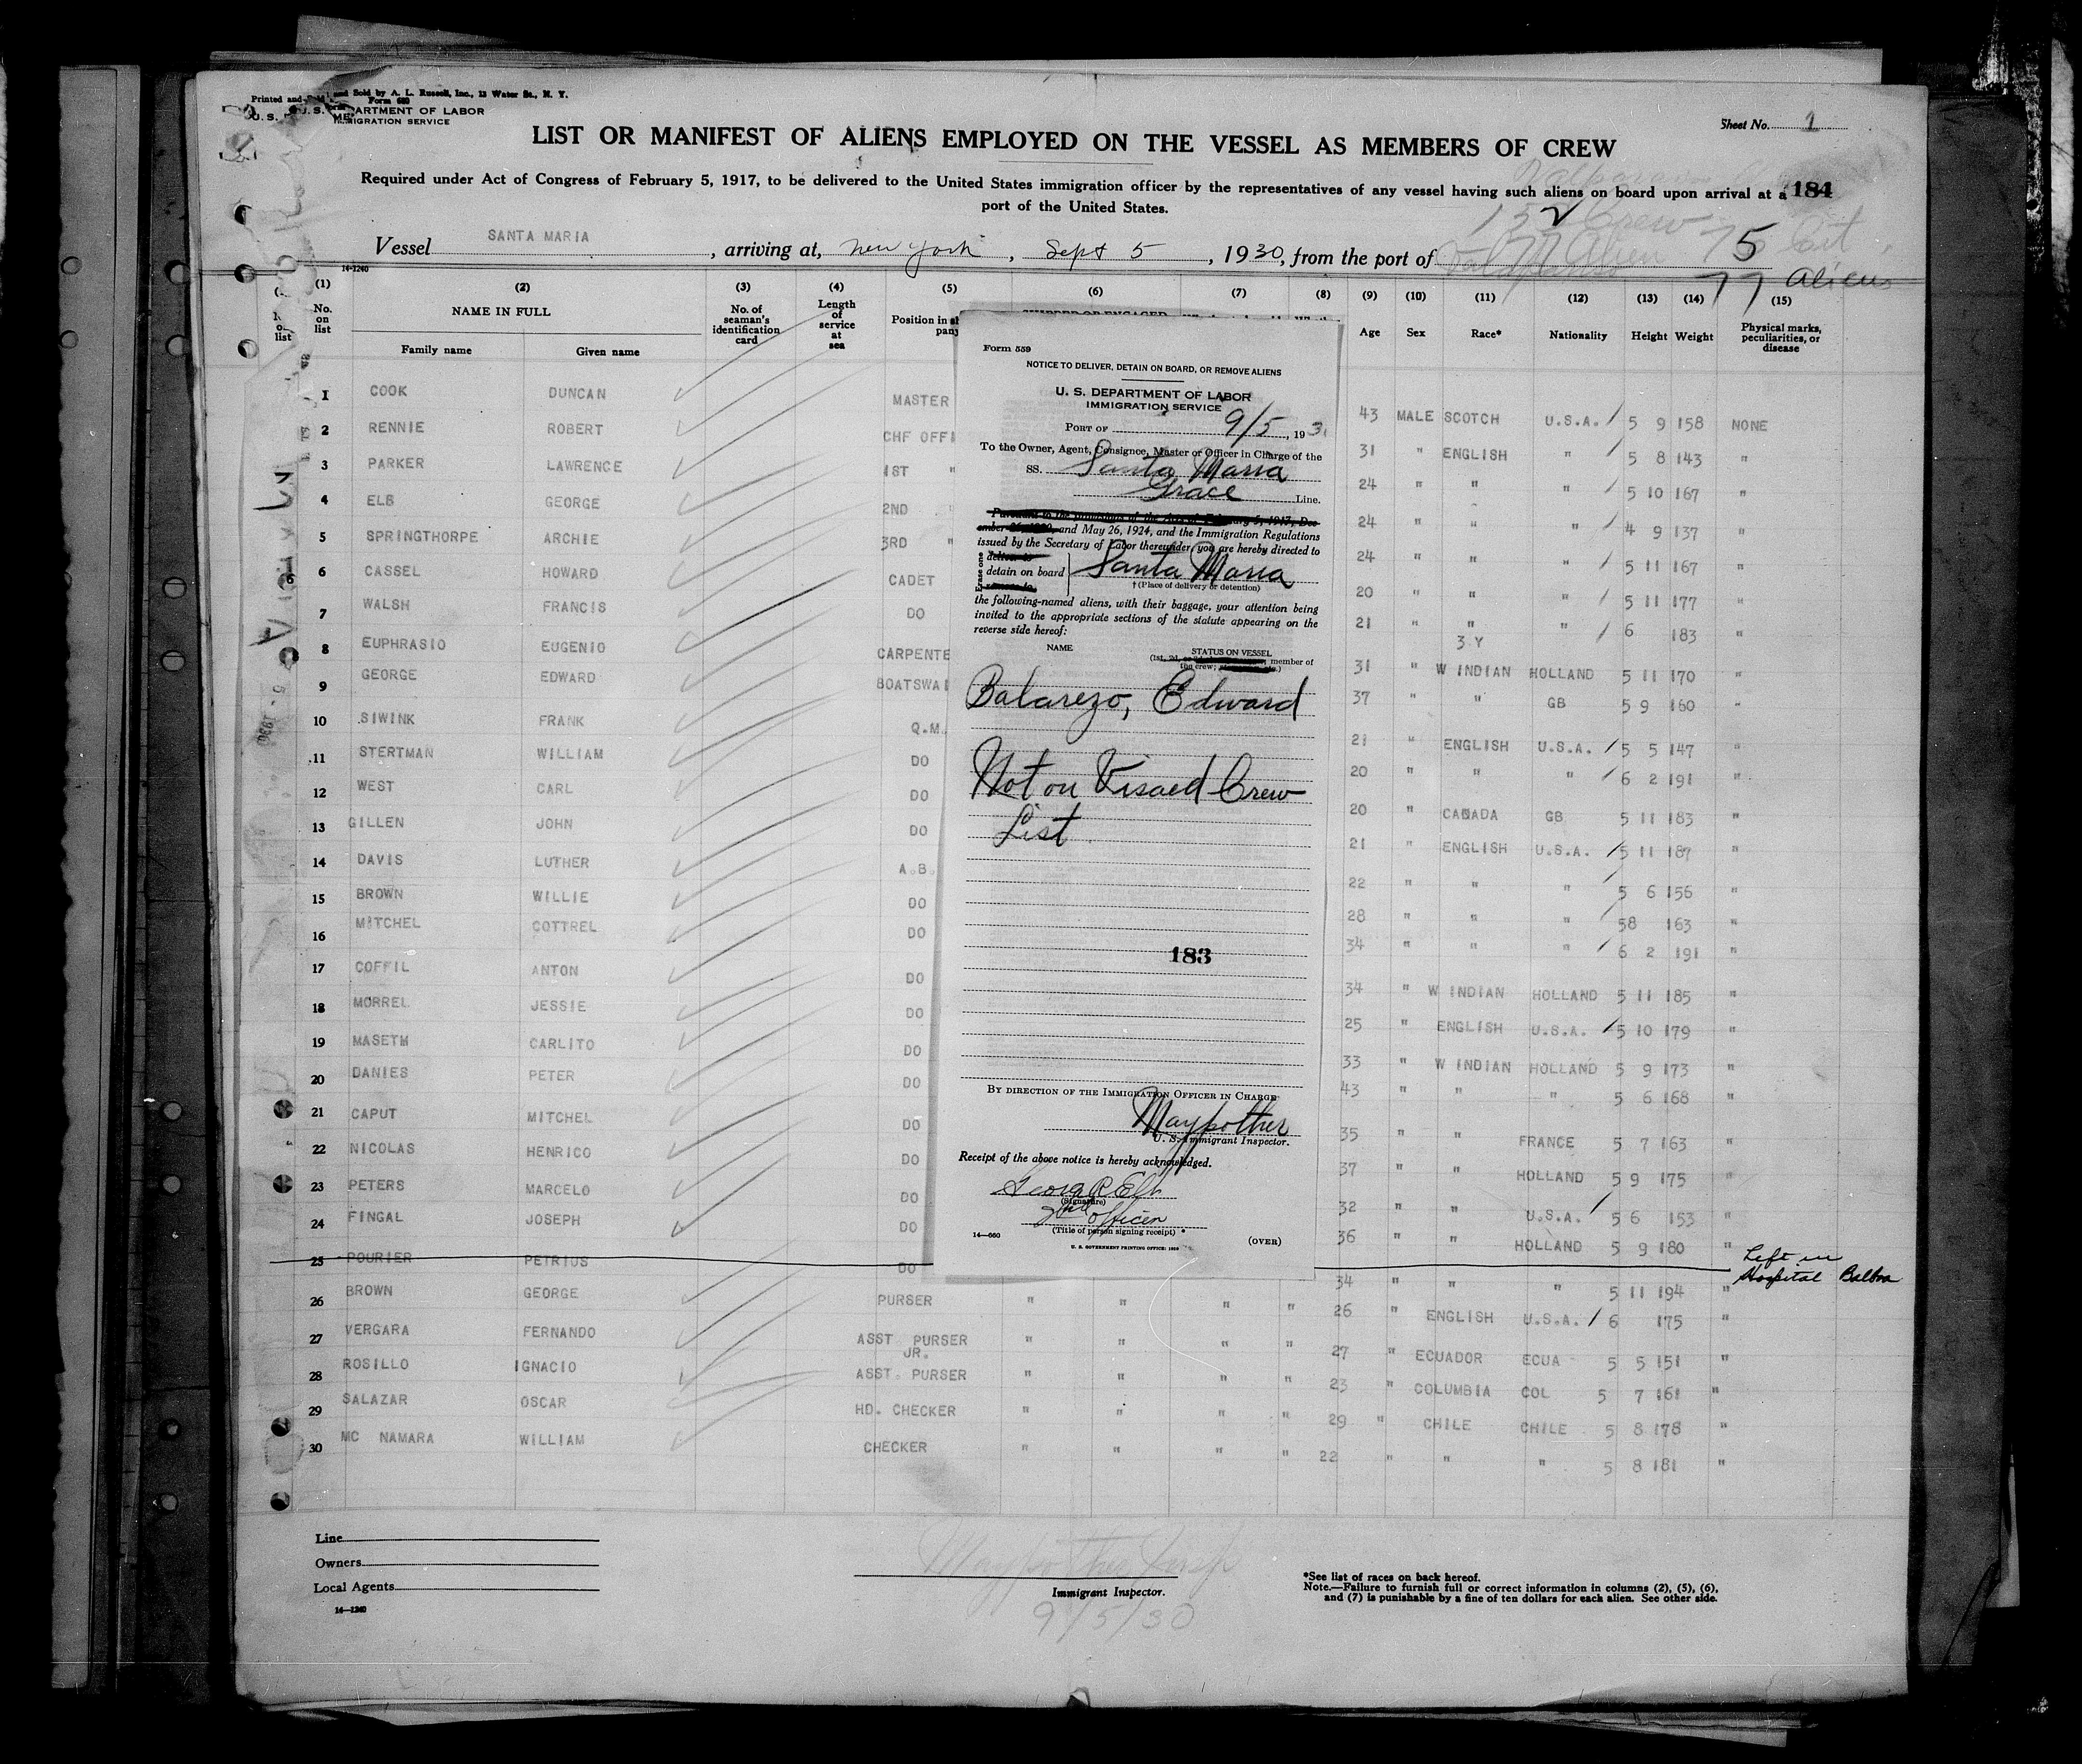 Printed and Sold by A. L. Russell, Inc., 13 Water St., N. Y.
Form 680
U. S. DEPARTMENT OF LABOR
IMMIGRATION SERVICE
Sheet No. 1
LIST OR MANIFEST OF ALIENS EMPLOYED ON THE VESSEL AS MEMBERS OF CREW
Required under Act of Congress of February 5, 1917, to be delivered to the United States immigration officer by the representatives of any vessel having such aliens on board upon arrival at a
184
port of the United States.
152 Crew
75 Cit
77 Aliens
Vessel SANTA MARIA, arriving at, New York, Sept 5, 1930, from the port of
14-1240
(1) (2) (3) (4) (5) (6) (7) (8) (9) (10) (11) (12) (13) (14) (15)
No. on list NAME IN FULL No. of seaman's identification card Length of service at sea Position in Age Sex Race* Nationality Height Weight Physical marks, peculiarities, or disease
Family name Given name
1 COOK DUNCAN MASTER 43 MALE SCOTCH U.S.A. 5 9 158 NONE
2 RENNIE ROBERT CHF OFFI 31 " ENGLISH " 5 8 143 "
3 PARKER LAWRENCE 1ST " 24 " " " 5 10 167 "
4 ELB GEORGE 2ND " 24 " " " 4 9 137 "
5 SPRINGTHORPE ARCHIE 3RD " 24 " " " 5 11 167 "
6 CASSEL HOWARD CADET 20 " " " 5 11 177 "
7 WALSH FRANCIS DO 21 " " " 6 183 "
3 Y
8 EUPHRASIO EUGENIO CARPENTE 31 " W INDIAN HOLLAND 5 11 170 "
9 GEORGE EDWARD BOATSWAI 37 " " GB 5 9 160 "
10 SIWINK FRANK Q.M. 21 " ENGLISH U.S.A. 5 5 147 "
11 STERTMAN WILLIAM DO 20 " " " 6 2 191 "
12 WEST CARL DO 20 " CANADA GB 5 11 183 "
13 GILLEN JOHN DO 21 " ENGLISH U.S.A. 5 11 187 "
14 DAVIS LUTHER A.B. 22 " " " 5 6 156 "
15 BROWN WILLIE DO 28 " " " 58 163 "
16 MITCHEL COTTREL DO 34 " " " 6 2 191 "
17 COFFIL ANTON DO 34 " W INDIAN HOLLAND 5 11 185 "
18 MORREL JESSIE DO 25 " ENGLISH U.S.A. 5 10 179 "
19 MASETH CARLITO DO 33 " W INDIAN HOLLAND 5 9 173 "
20 DANIES PETER DO 43 " " " 5 6 168 "
21 CAPUT MITCHEL DO 35 " " FRANCE 5 7 163 "
22 NICOLAS HENRICO DO 37 " HOLLAND 5 9 175 "
23 PETERS MARCELO DO 32 " " U.S.A. 5 6 153 "
24 FINGAL JOSEPH DO 36 " " HOLLAND 5 9 180 "
25 POURIER PETRIUS DO 34 " " " 5 11 194 " Left in Hospital Balboa
26 BROWN GEORGE PURSER " " " " 26 " ENGLISH U.S.A. 6 175 "
27 VERGARA FERNANDO ASST PURSER " " " " 27 " ECUADOR ECUA 5 5 151 "
JR.
28 ROSILLO IGNACIO ASST. PURSER " " " " 23 " COLUMBIA COL 5 7 161 "
29 SALAZAR OSCAR HD. CHECKER " " " " 29 " CHILE CHILE 5 8 178 "
30 MC NAMARA WILLIAM CHECKER " " " " 22 " " " 5 8 181 "
Form 559
NOTICE TO DELIVER, DETAIN ON BOARD, OR REMOVE ALIENS
U. S. DEPARTMENT OF LABOR
IMMIGRATION SERVICE
PORT OF 9/5, 193
To the Owner, Agent, Consignee, Master or Officer in Charge of the
SS. Santa Maria
Grace Line.
Pursuant to the provisions of the Acts of February 5, 1917, Dec-
ember 26, 1920, and May 26, 1924, and the Immigration Regulations
issued by the Secretary of Labor thereunder, you are hereby directed to
Erase one
deliver to
detain on board Santa Maria
remove to
† (Place of delivery or detention)
the following-named aliens, with their baggage, your attention being
invited to the appropriate sections of the statute appearing on the
reverse side hereof:
NAME STATUS ON VESSEL
(1st, 2d, member of
the crew;
Balarezo, Edward
Not on Visaed Crew
List
183
BY DIRECTION OF THE IMMIGRATION OFFICER IN CHARGE
Maypother
U. S. Immigrant Inspector.
Receipt of the above notice is hereby acknowledged.
George R Elb
(Signature)
2nd Officer
(Title of person signing receipt)
14—660
(OVER)
U. S. GOVERNMENT PRINTING OFFICE:
Line
Owners
Local Agents
14—1240
Maypother Insp
Immigrant Inspector.
9/5/30
*See list of races on back hereof.
Note.—Failure to furnish full or correct information in columns (2), (5), (6),
and (7) is punishable by a fine of ten dollars for each alien. See other side.